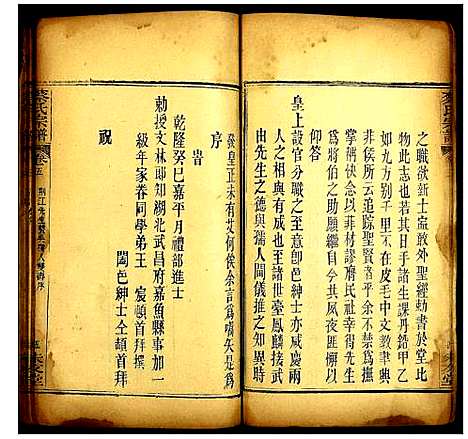 之職欲新士盍敢外聖經動書於堂比
物此志也若其日手諸生課丹鉛甲乙
左右別皮千里不亦在皮毛中文教聿興
非侯所云追踪聖賢者乎余不禁爲撫
掌稱快念以菲材謬膺民社幸得先生
爲將伯之助嗣繼自今其夙夜匪懈以
仰答
皇上設官分職之至意卽邑紳士亦咸慶有
人之相與有成也至諸世臺鳳麟接武
由先生之德與孺人閫儀推之又當異時
發皇正未有艾何俟余言爲頌矣是爲
序
旹
乾隆癸巳嘉平月禮部進士
勅授文林郎知湖北武昌府嘉魚縣事加一
級年家眷同學弟王宸頓首拜撰
闔邑紳士仝頓首拜
祝
蔡氏宗譜
卷五